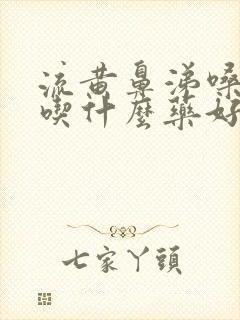 流黄鼻涕嗓
喫什麼藥好
七家丫頭